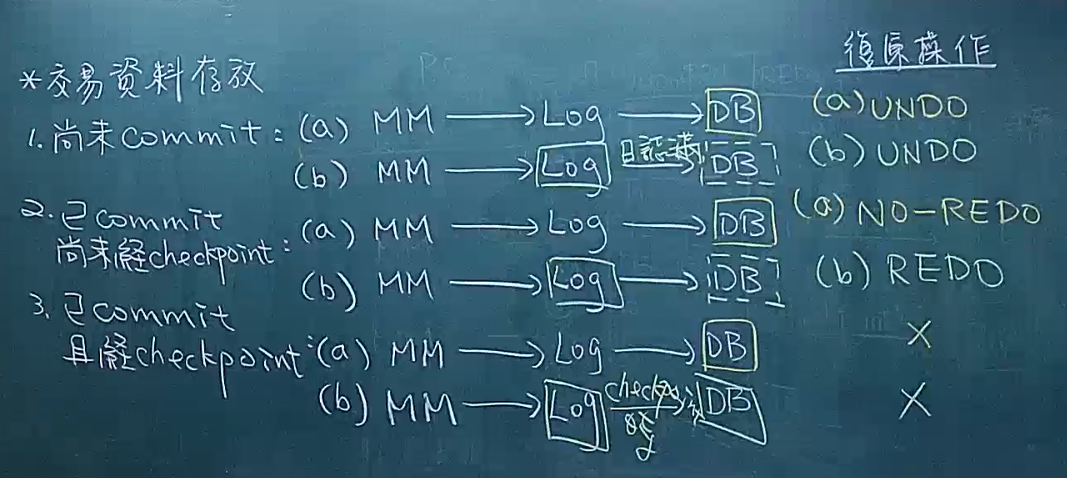 復原操作
*交易資料存放
1.尚未commit: (a) MM → Log → DB (a) UNDO
(b) MM → Log 日誌滿 → DB (b) UNDO
2.已commit
尚未經checkpoint: (a) MM → Log → DB (a) NO-REDO
(b) MM → Log → DB (b) REDO
3.已commit
且經checkpoint: (a) MM → Log → DB X
(b) MM → Log → DB X